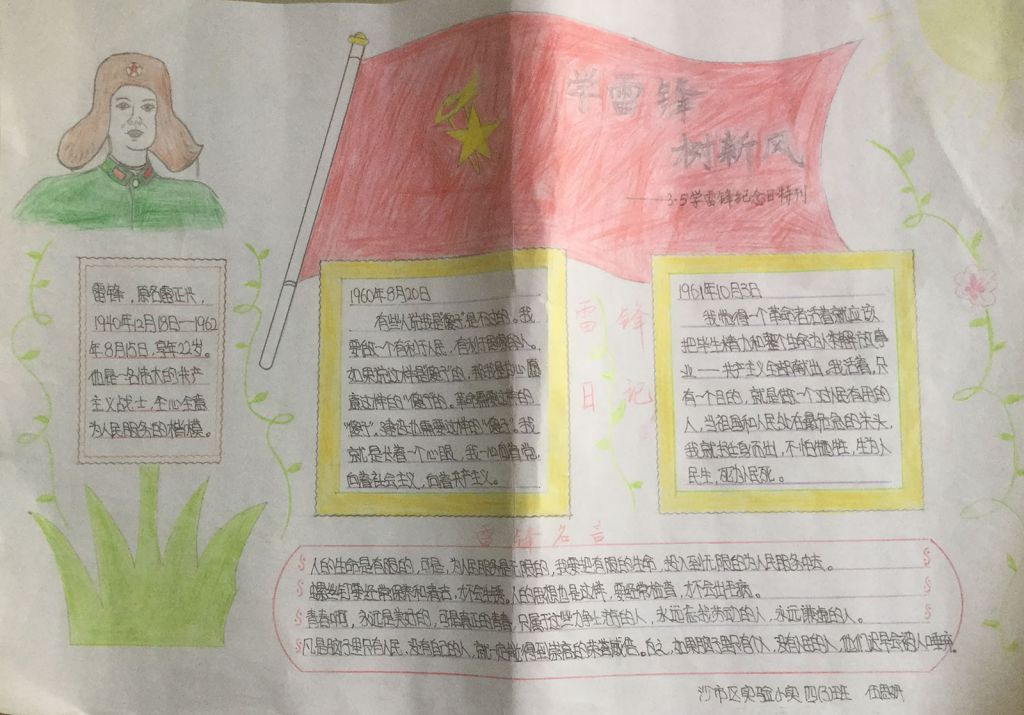 学雷锋
树新风
——3·5学雷锋纪念日特刊
雷锋，原名雷正兴，
1940年12月18日—1962
年8月15日，享年22岁。
他是一名伟大的共产
主义战士，全心全意
为人民服务的楷模。
雷锋
日记
1960年8月20日
有些人说我是傻子是不对的。我
要做一个有利于人民，有利于国家的人。
如果说这样是傻子的，我我是甘心愿
意这样的“傻子”的。革命需要这样的
“傻子”，建设也需要这样的“傻子”。我
就是长着一个心眼，我一心向着党，
向着社会主义，向着共产主义。
1961年10月3日
我觉得一个革命者活着就应该
把毕生精力和整个生命为人类解放事
业——共产主义全部献出，我活着，只
有一个目的，就是做一个对人民有用的
人，当祖国和人民处在最危急的关头，
我就挺身而出，不怕牺牲，生为人
民生，死为人民死。
雷锋名言
人的生命是有限的，可是，为人民服务是无限的，我要把有限的生命，投入到无限的为人民服务中去。
螺丝钉要经常保养和清洁，才不会生锈。人的思想也是这样，要经常检查，才不会出毛病。
青春啊，永远是美好的，可是真正的青春，只属于这些力争上游的人，永远忘我劳动的人，永远谦虚的人。
凡是脑子里只有人民，没有自己的人，就一定能得到崇高的荣誉和威信。反之，如果脑子里只有个人，没有人民的人，他们迟早会被人唾弃。
沙市区实验小学 四(3)班